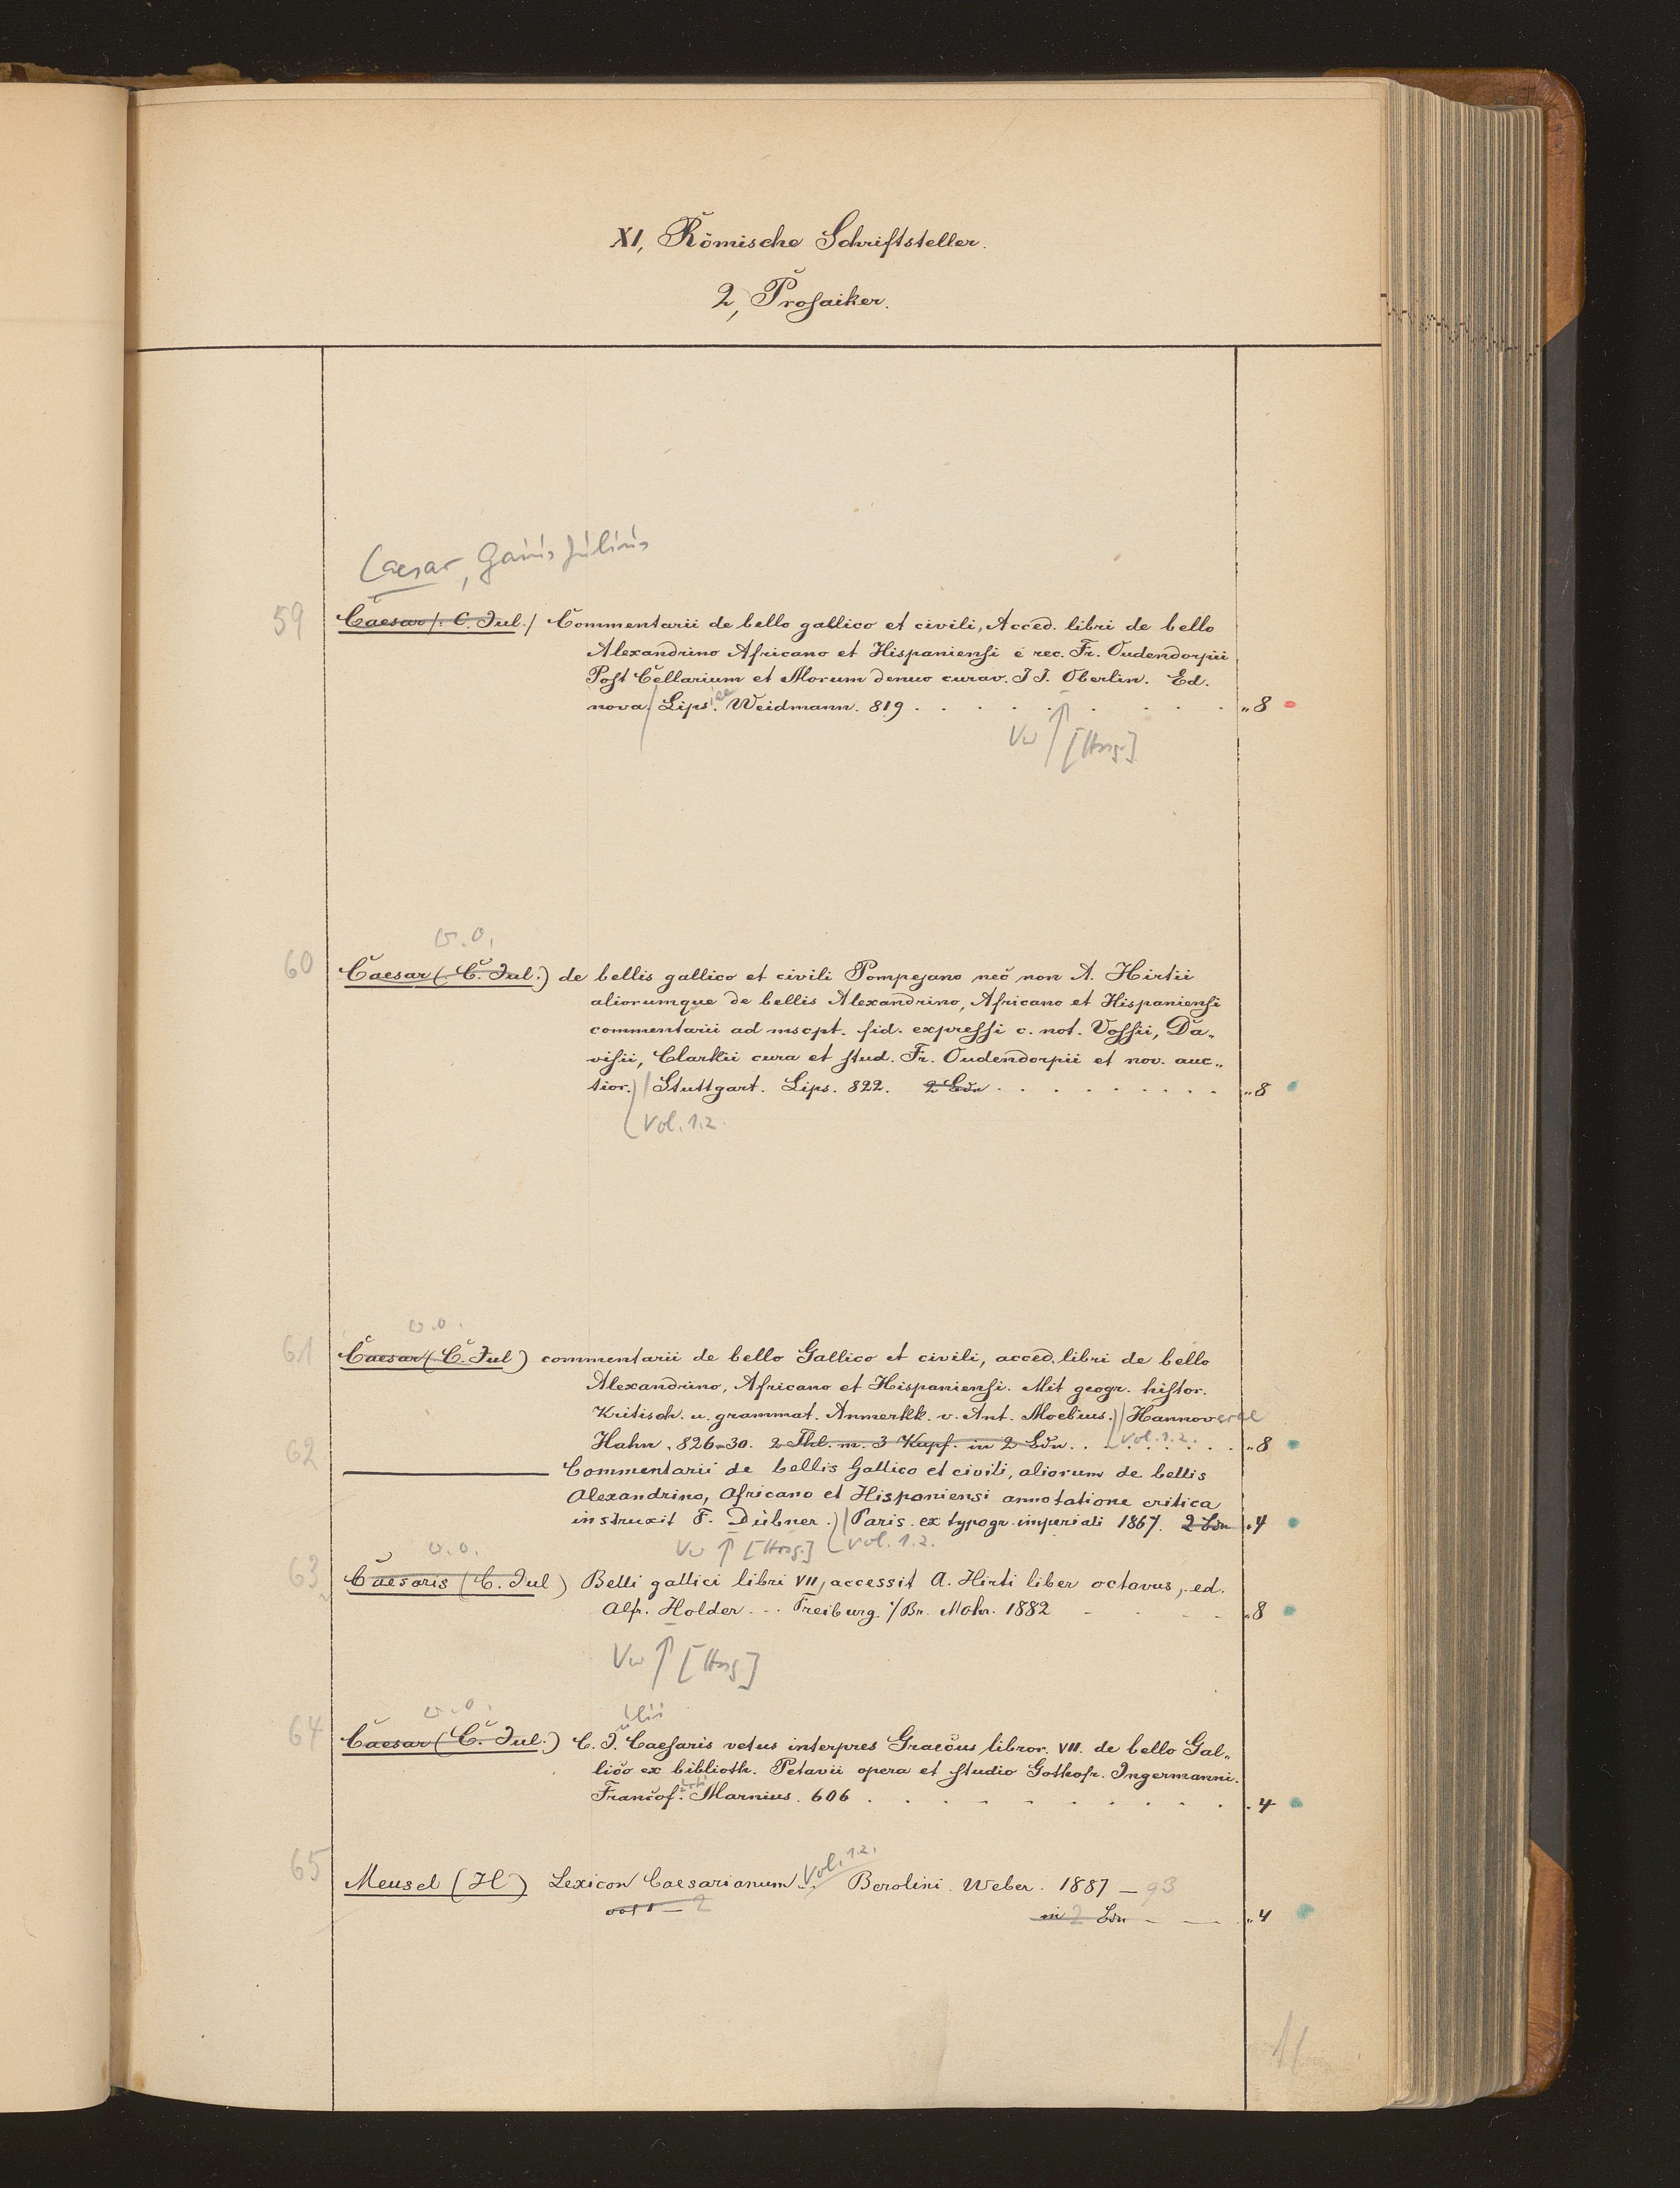 XI, Römische Schriftsteller.
2, Prosaiker.
Caesar, Gaius Julius
59 Caesar /. C. Jul./ Commentarii de bello gallico et civili, Acced. libri de bello
Alexandrino Africano et Hispaniensi é rec. Fr. Oudendorpii
Post Cellarium et Morum denuo curav. J J. Oberlin. Ed.
nova. / Lipsiae. Weidmann. 819 . . . . . . . . . „ 8
Vw ↑ [Hrsg.]
v. o.
60 Caesar (C. Jul.) de bellis gallico et civili Pompejano nec non A. Hirtii
aliorumque de bellis Alexandrino, Africano et Hispaniensi
commentarii ad mscpt. fid. expressi c. not. Vossii, Da„
visii, Clarkii cura et stud. Fr. Oudendorpii et nov. auc„
tior.) / Stuttgart. Lips. 822. 2 Bde . . . . . . . . „ 8
Vol. 1.2.
v. o.
61 Caesar (C. Jul) commentarii de bello Gallico et civili, acced. libri de bello
Alexandrino, Africano et Hispaniensi. Mit geogr. histor.
Kritisch. u. grammat. Anmerkk. v. Ant. Moebius.) / Hannoverae
Hahn. 826-30. 2 Thl. m. 3 Kupf. in 2 Bdn . . Vol. 1.2. . . „ 8
62 ——— Commentarii de bellis Gallico et civili, aliorum de bellis
Alexandrino, Africano et Hispaniensi annotatione critica
instruxit F. Dübner.) / Paris. ex typogr. imperiali 1867. 2 Bde . 4
Vw ↑ [Hrsg.] Vol. 1.2.
v. o.
63 Caesaris (C. Jul) Belli gallici libri VII, accessit A. Hirti liber octavus, ed.
Alfr. Holder. . . Freiburg i/Br. Mohr. 1882 - - - - „ 8
Vw ↑ [Hrsg.]
v. o.
ulii
64 Caesar (C. Jul.) C. J. Caesaris vetus interpres Graecus libror. VII. de bello Gal„
lico ex biblioth. Petavii opera et studio Gothofr. Jngermanni.
Francof. Marnius. 606 . . . . . . . . . . 4
65 Meusel (H) Lexicon Caesarianum Vol. 1.2. Berolini. Weber. 1887 – 93
vol 1 – 2 in 2 Bdn – – „ 4